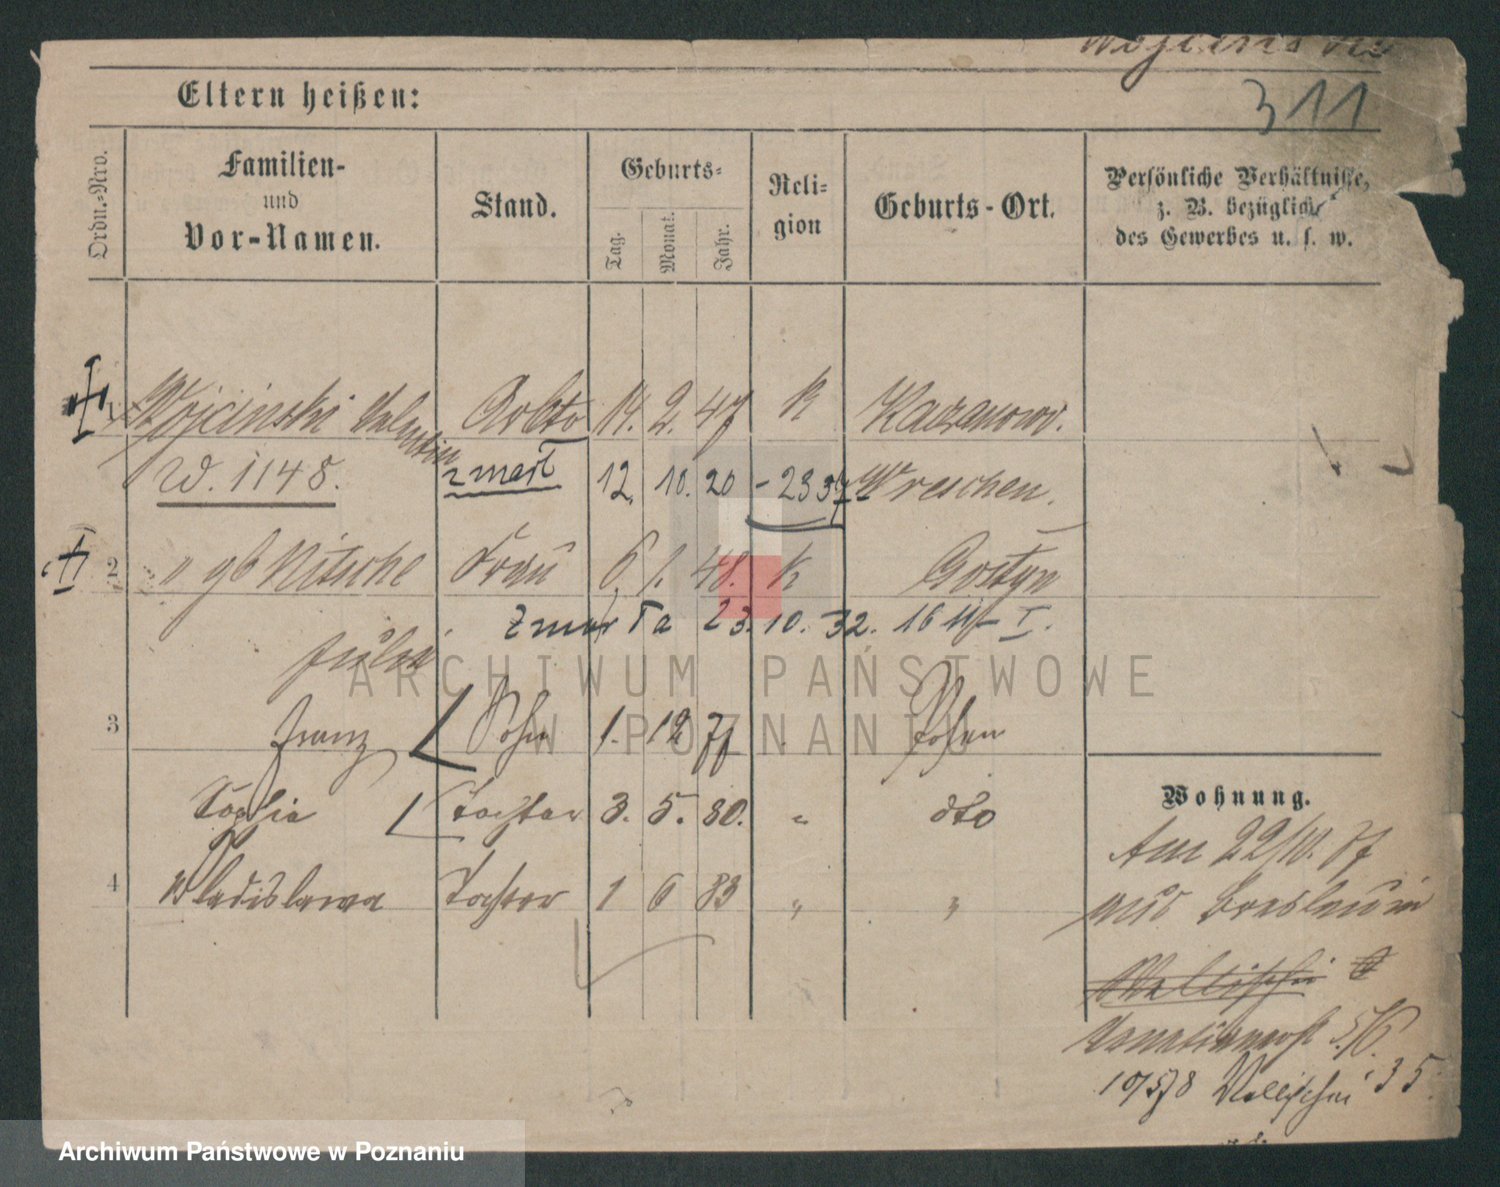 Wojcinski
311
Eltern heißen:
Ordn.-Nro.
Familien-
und
Vor-Namen.
Stand.
Geburts-
Tag.
Monat.
Jahr.
Reli-
gion
Geburts-Ort.
Persönliche Verhältnisse,
z. B. bezüglich
des Gewerbes u. s. w.
1 Wojcinski Valentin 14. 2. 47 K
W. 1148. zmarł 12. 10. 20 Wreschen.
2 " gb Nitsche Frau 6. 1. 48. K Gostyn
zmarła 23. 10. 32.
Julia
3 Franz Sohn 1. 12 77 Posen
Sophia Tochter 3. 5. 80. " dto
4 Wladislawa Tochter 1 6 83 " "
Wohnung.
Am 22/10. 77
aus Breslau in
Wallischei
Wallischei 35
ARCHIWUM PAŃSTWOWE
W POZNANIU
Archiwum Państwowe w Poznaniu